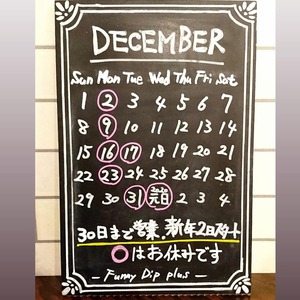 DECEMBER
Sun Mon Tue Wed Thu Fri Sat
1 2 3 4 5 6 7
8 9 10 11 12 13 14
15 16 17 18 19 20 21
22 23 24 25 26 27 28
2020
29 30 31 元日 2 3 4
30日まで営業、新年2日スタート
○はお休みです
— Funny Dip plus —